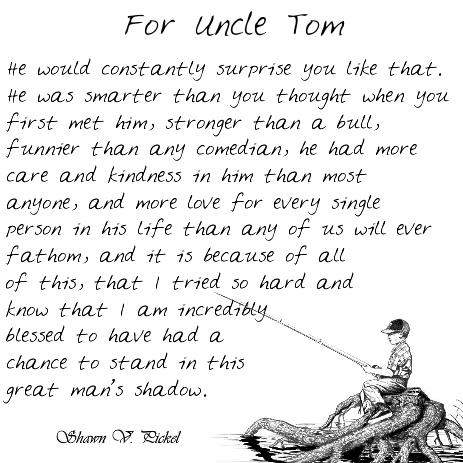 For Uncle Tom
He would constantly surprise you like that.
He was smarter than you thought when you
first met him, stronger than a bull,
funnier than any comedian, he had more
care and kindness in him than most
anyone, and more love for every single
person in his life than any of us will ever
fathom, and it is because of all
of this, that I tried so hard and
know that I am incredibly
blessed to have had a
chance to stand in this
great man's shadow.
Shawn V. Pickel